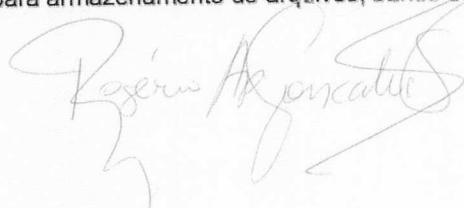 para armazenamento de arquivos,
Rogério A Gonçalves